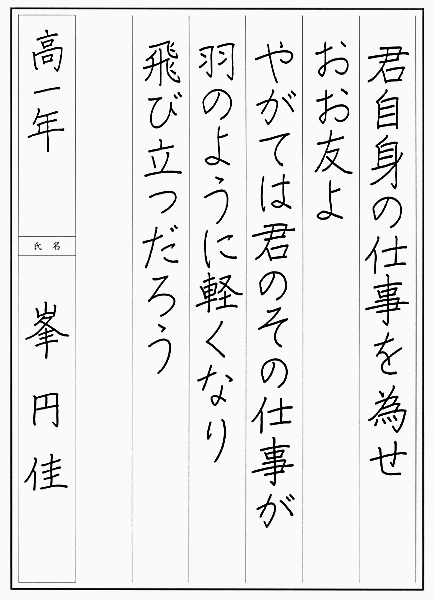 君自身の仕事を為せ
おお友よ
やがては君のその仕事が
羽のように軽くなり
飛び立つだろう
高一年
氏名
峯円佳